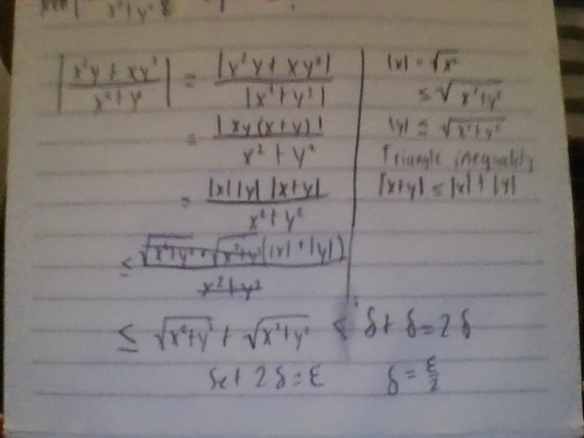 x²+y²
|x²y + xy²/x²+y²| = |x²y + xy²|/|x²+y²|
= |xy(x+y)|/x²+y²
= |x||y| |x+y|/x²+y²
≤ √x²+y² √x²+y² (|x|+|y|)/x²+y²
≤ √x²+y² + √x²+y² < δ+δ=2δ
Set 2δ=ε δ=ε/2
|x| = √x²
≤ √x²+y²
|y| ≤ √x²+y²
Triangle inequality
|x+y| ≤ |x|+|y|